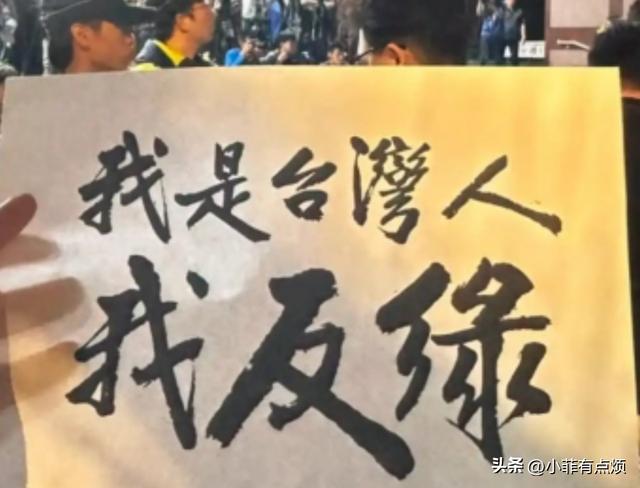 我是台灣人
我反綠
头条 @小菲有点烦